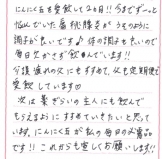 にんにく玉を愛飲して2ヶ月!!今までずーっと
悩んでいた扁桃腺炎がうそのように
調子が良いです♪体の調子も良いので
毎日欠かさず飲んでいます!!
介護疲れの父にもすすめて、父も定期便で
愛飲しています
次は畳ずらいの主人にも飲んで
もらえるようにすすめていきたいと思って
います。にんにく玉が私の毎日の必需品
です!!これからも宜しくお願いします!!